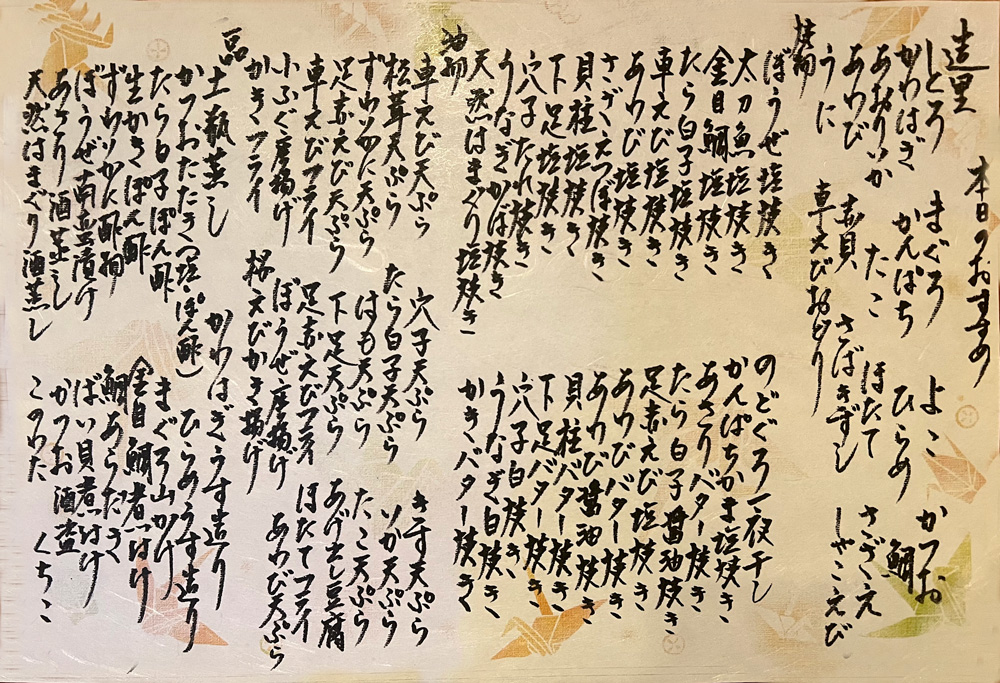 本日のおすすめ
造里
しとろ まぐろ よこ かつお
かわはぎ かんぱち ひらめ 鯛
あおりいか たこ ほたて さざえ
あわび 赤貝 さばきずし しゃこえび
うに 車えびおどり
焼物
ぼうぜ塩焼き のどぐろ一夜干し
太刀魚塩焼き かんぱちかま塩焼き
金目鯛塩焼き あさりバター焼き
たら白子塩焼き たら白子醤油焼き
車えび塩焼き 足赤えび塩焼き
あわび塩焼き あわびバター焼き
さざえつぼ焼き あわび醤油焼き
貝柱塩焼き 貝柱バター焼き
下足塩焼き 下足バター焼き
穴子たれ焼き 穴子白焼き
うなぎかば焼き うなぎ白焼き
天然はまぐり塩焼き かきバター焼き
油物
車えび天ぷら 穴子天ぷら きす天ぷら
松茸天ぷら たら白子天ぷら いか天ぷら
ずわいかに天ぷら はも天ぷら たこ天ぷら
足赤えび天ぷら 下足天ぷら あげ出し豆腐
車えびフライ 足赤えびフライ ほたてフライ
小ふぐ唐揚げ ぼうぜ唐揚げ あわび天ぷら
かきフライ 桜えびかき揚げ
一品
土瓶蒸し かわはぎうす造り
かつおたたき(塩・ぽん酢) ひらめうす造り
たら白子ぽん酢 まぐろ山かけ
生かきぽん酢 金目鯛煮つけ
ずわいかに酢物 鯛あらだき
ぼうぜ南蛮漬け ばい貝煮つけ
あさり酒蒸し かつお酒盗 くちこ
天然はまぐり酒蒸し このわた